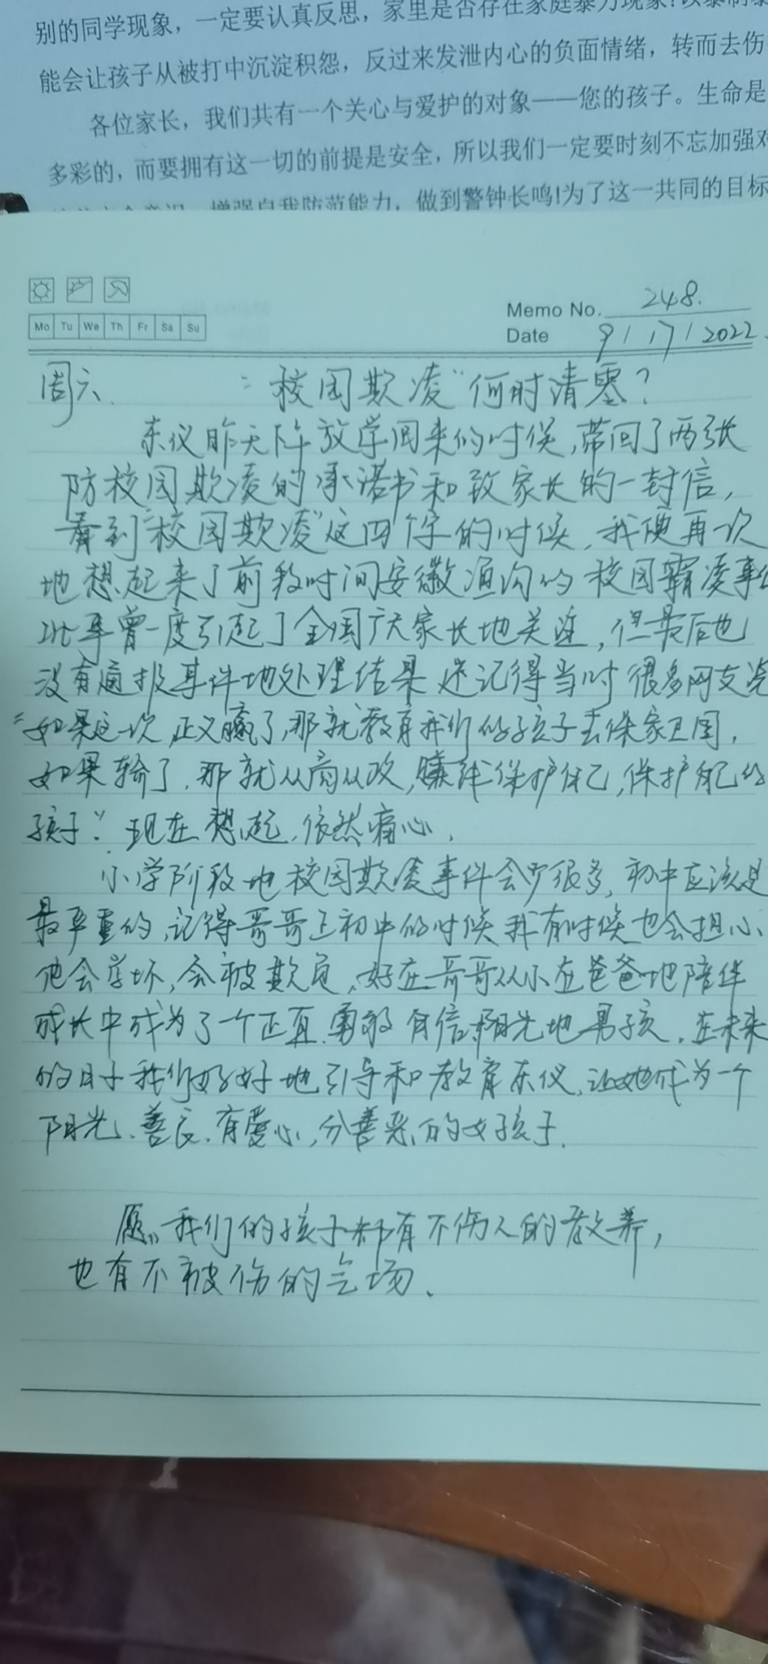 别的同学现象，一定要认真反思，家里是否存在家庭暴力现象!以暴制暴
能会让孩子从被打中沉淀积怨，反过来发泄内心的负面情绪，转而去伤
各位家长，我们共有一个关心与爱护的对象——您的孩子。生命是
多彩的，而要拥有这一切的前提是安全，所以我们一定要时刻不忘加强对
增强自我防范能力，做到警钟长鸣!为了这一共同的目标
Memo No. 248.
Mo Tu We Th Fr Sa Su
Date 9/17/2022.
周六. "校园欺凌"何时清零?
东仪昨天下午放学回来的时候,带回了两张
防校园欺凌的承诺书和致家长的一封信,
看到"校园欺凌"这四个字的时候,我便再一次
地想起来了前段时间安徽 的校园霸凌事件
此事曾一度引起了全国广大家长地关注,但最后也
没有通报事件地处理结果 还记得当时很多网友说
"如果这一次,正义赢了,那就教育我们的孩子去保家卫国,
如果输了,那就从商从政,赚钱保护自己,保护自己的
孩子". 现在想起,依然痛心.
小学阶段地校园欺凌事件会少很多,初中应该是
最严重的,记得哥哥上初中的时候我有时候也会担心,
他会学坏,会被欺负,好在哥哥从小在爸爸地陪伴
成长中成为了一个正直.勇敢 自信.阳光地男孩.在未来
的日子我们好好地引导和教育东仪,让她成为一个
阳光、善良.有爱心,分善恶.的女孩子.
愿,,我们的孩子都有不伤人的教养,
也有不被伤的气场.